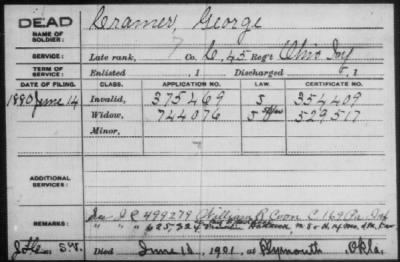 DEAD
NAME OF SOLDIER:
Cramer, George
SERVICE:
Late rank, Co. C, 45 Reg't Ohio Inf
TERM OF SERVICE:
Enlisted , 1 Discharged , 1
DATE OF FILING. CLASS. APPLICATION NO. LAW. CERTIFICATE NO.
1880 June 14 Invalid, 375469 S 354409
Widow, 744076 529517
Minor,
ADDITIONAL SERVICES:
REMARKS:
499279 William R Coon C 169 Pa Inf
" " " 625,324
Died June 11, 1901, at Plymouth, Okla.